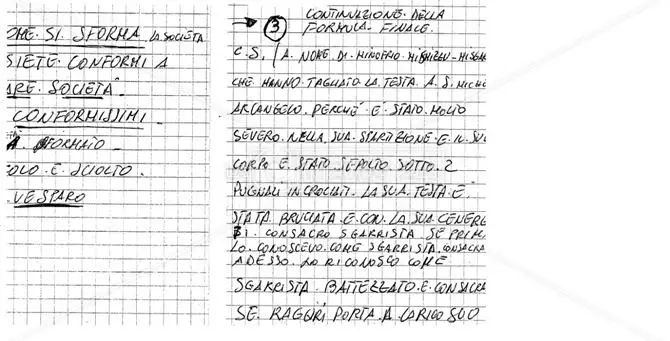 OME. SI. SFORMA. LA SOCIETA
SIETE. CONFORMI A
ARE. SOCIETÀ.
CONFORMISSIMI.
FORMATO.
OLO. E. SCIOLTO.
VESPARO
③ CONTINUAZIONE. DELLA
FORMULA. FINALE.
C.S. / A. NOME. DI. MINOFRIO. MISGA
CHE HANNO. TAGLIATO LA. TESTA. A. S. MICHE
ARCANGELO. PERCHÉ. È. STATO. MOLTO
SEVERO. NELLA. SUA. SPARTIZIONE. E. IL. SU
CORPO. E. STATO. SEPOLTO. SOTTO. 2
PUGNALI INCROCIATI. LA SUA. TESTA. E.
STATA. BRUCIATA. E. CON. LA. SUA. CENERE
CONSACRO. SGARRISTA. SE PRIM
LO. CONOSCEVO. COME. SGARRISTA. CONSACRA
ADESSO. LO RICONOSCO COME
SGARRISTA. BATTEZZATO. E. CONSACRA
SE. PORTA. A CARICO SUO